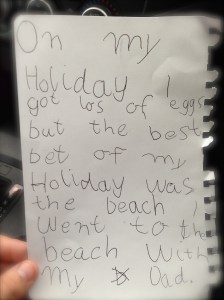 On my
Holiday I
got los of eggs
but the best
bet of my
Holiday was
the beach I
Went to the
beach With
My Dad.